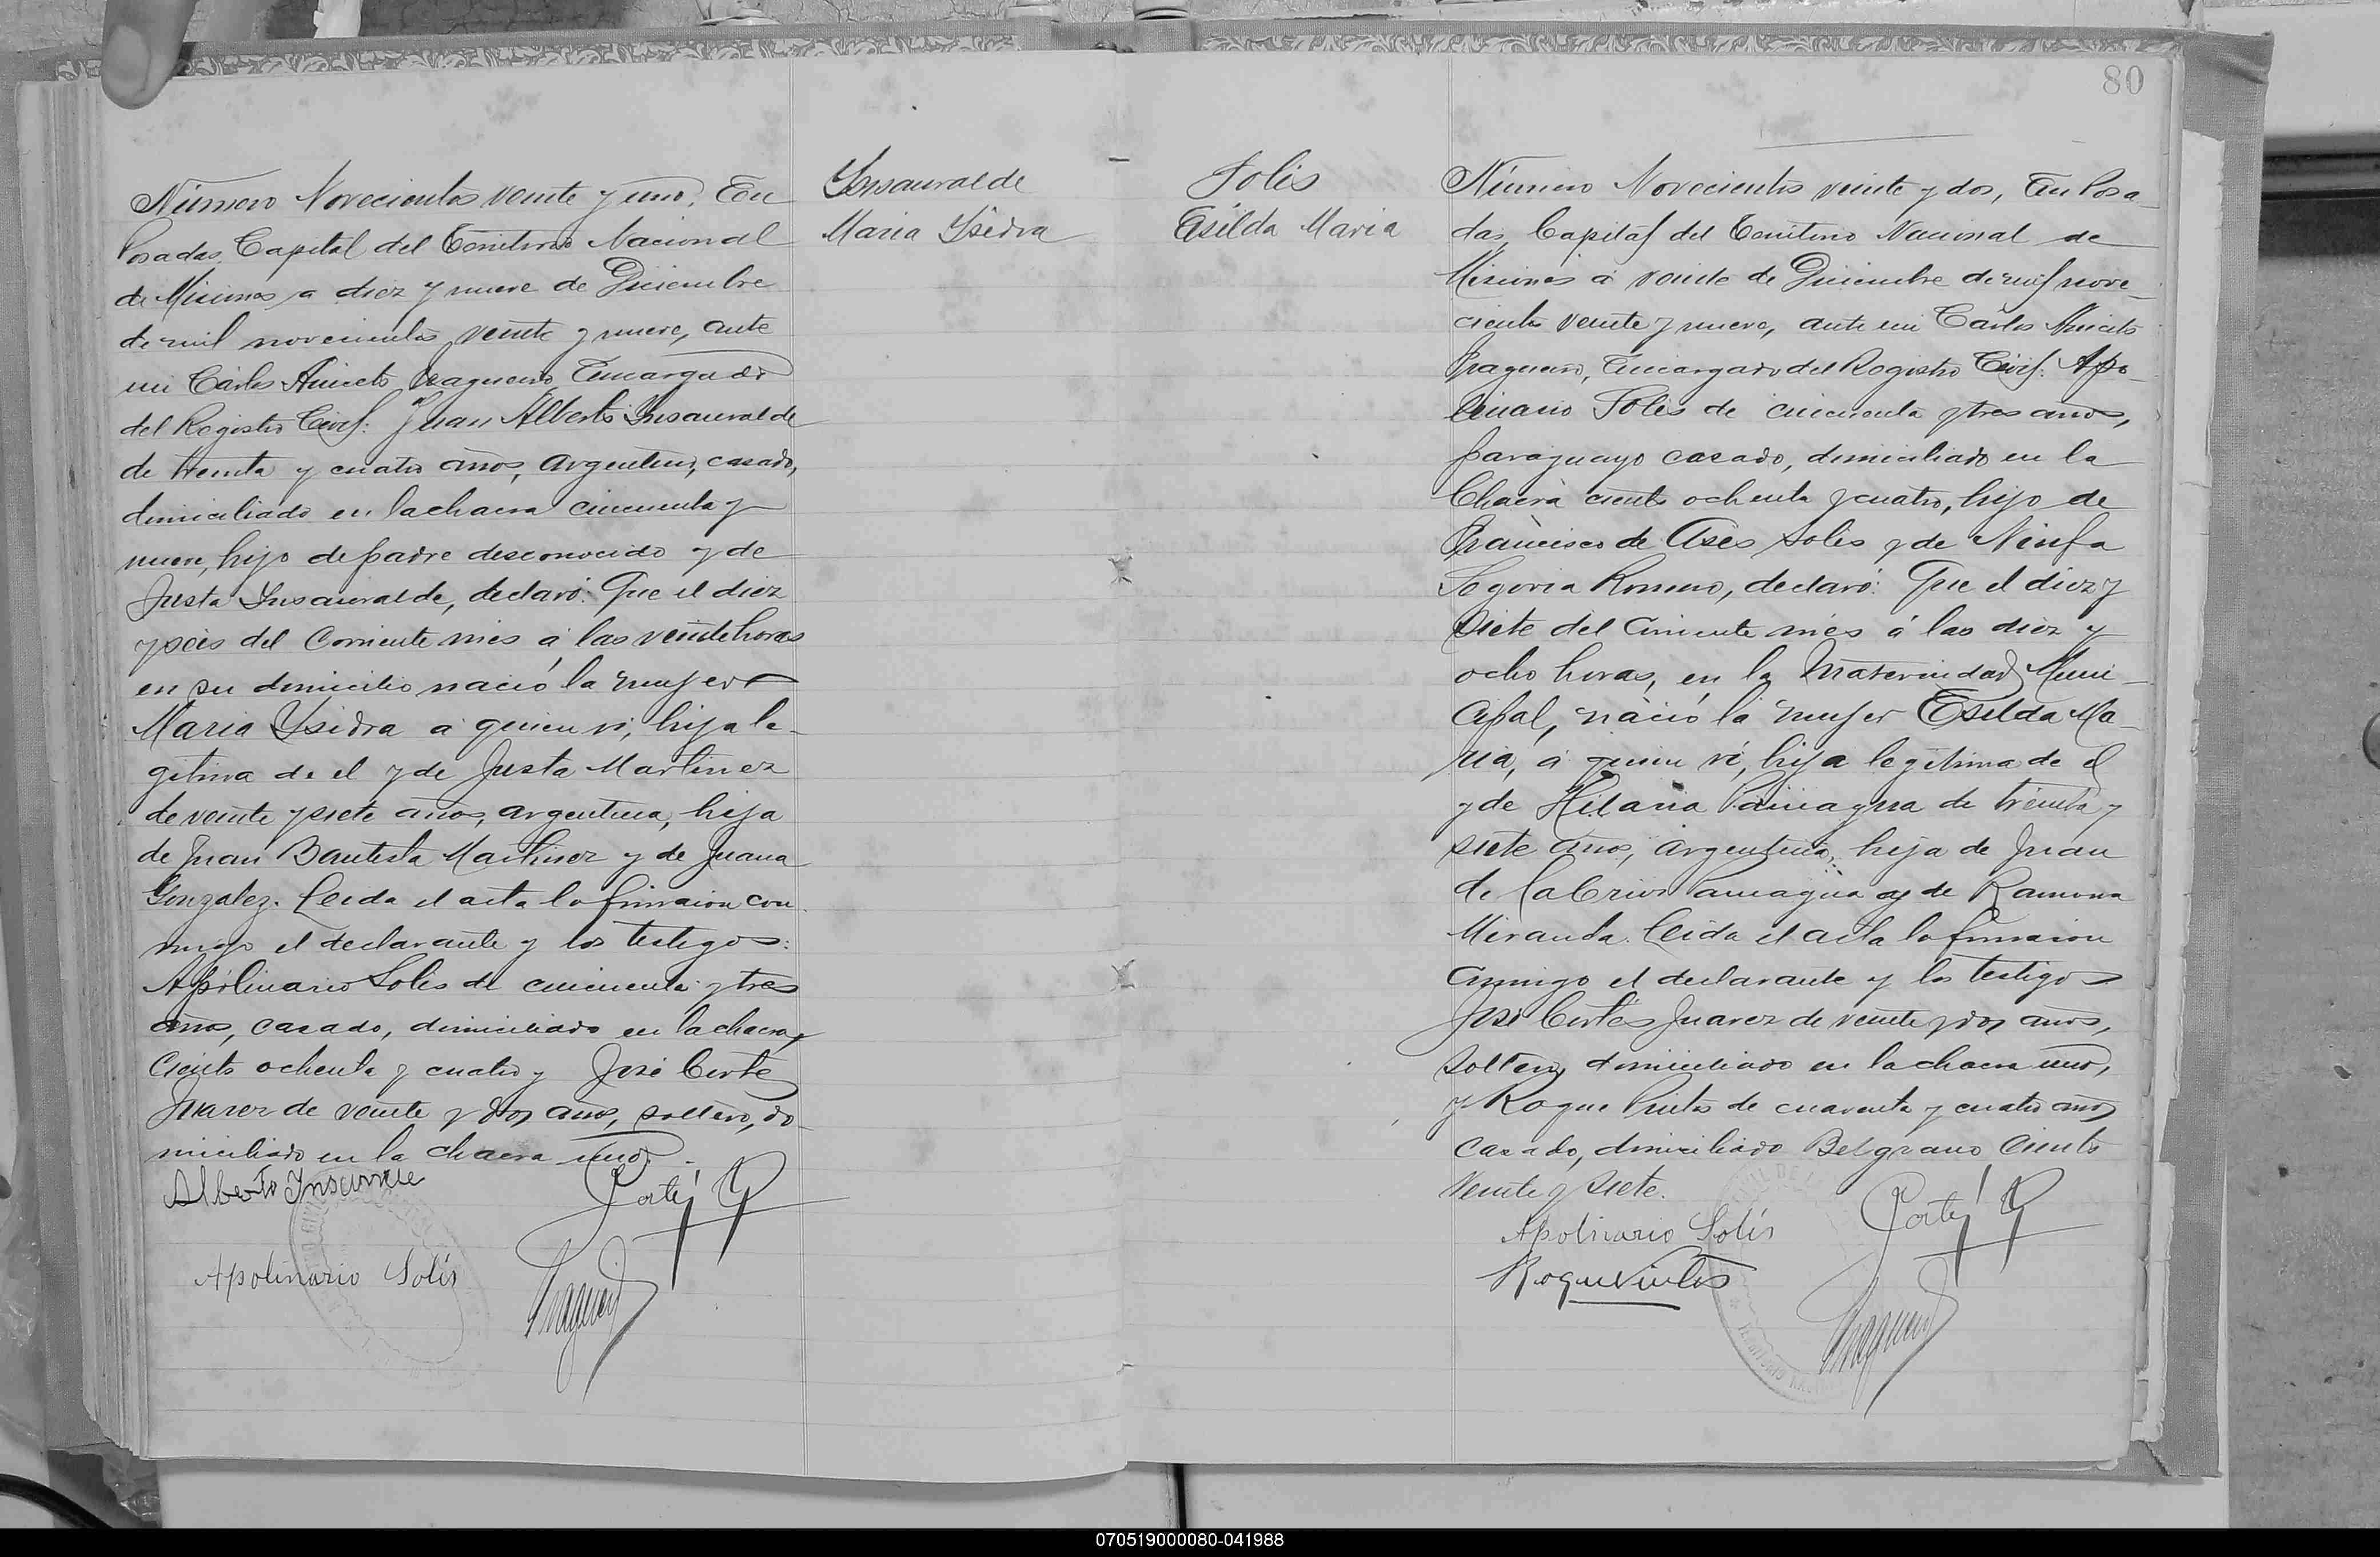 Número Novecientos veinte y uno. En
Posadas, Capital del Territorio Nacional
de Misiones a diez y nueve de Diciembre
de mil novecientos veinte y nueve, ante
mi Cárlos Aniceto Fragueiro, Encargado
del Registro Civil: Juan Alberto Insaurralde
de treinta y cuatro años, argentino, casado,
domiciliado en la chacra cincuenta y
nueve, hijo de padre desconocido y de
Justa Insaurralde, declaró: Que el diez
y seis del corriente mes á las veinte horas
en su domicilio nació la mujer
Maria Ysidra a quien vi, hija le-
gitima de el y de Justa Martinez
de veinte y siete años, argentina, hija
de Juan Bautista Martinez y de Juana
Gonzalez. Leida el acta la firmaron con
migo el declarante y los testigos:
Apolinario Solis de cincuenta y tres
años, casado, domiciliado en la chacra
ciento ochenta y cuatro y José Cortés
Juarez de veinte y dos años, soltero, do-
miciliado en la chacra uno.
Alberto
Apolinario Solís
Ynsaurralde
Maria Ysidra
80
Solis
Esilda Maria
Número Novecientos veinte y dos, En Posa-
das, Capital del Territorio Nacional de
Misiones á veinte de Diciembre de mil nove-
cientos veinte y nueve, ante mi Cárlos Aniceto
Fragueiro, Encargado del Registro Civil: Apo-
linario Solis de cincuenta y tres años,
paraguayo casado, domiciliado en la
Chacra ciento ochenta y cuatro, hijo de
Francisco de Asis Solis y de Ninfa
Segovia Romero, declaró: Que el diez y
siete del corriente mes á las diez y
ocho horas, en la Maternidad Muni-
cipal, nació la mujer Esilda Ma-
ria, á quien vi, hija legitima de el
y de Hilaria de treinta y
siete años, argentina, hija de Juan
de la Cruz y de Ramona
Miranda. Leida el acta la firmaron
conmigo el declarante y los testigos
José Cortés Juarez de veinte y dos años,
soltero, domiciliado en la chacra uno,
y Roque de cuarenta y cuatro años
casado, domiciliado Belgrano ciento
veinte y siete.
Apolinario Solís
Roque
070519000080-041988